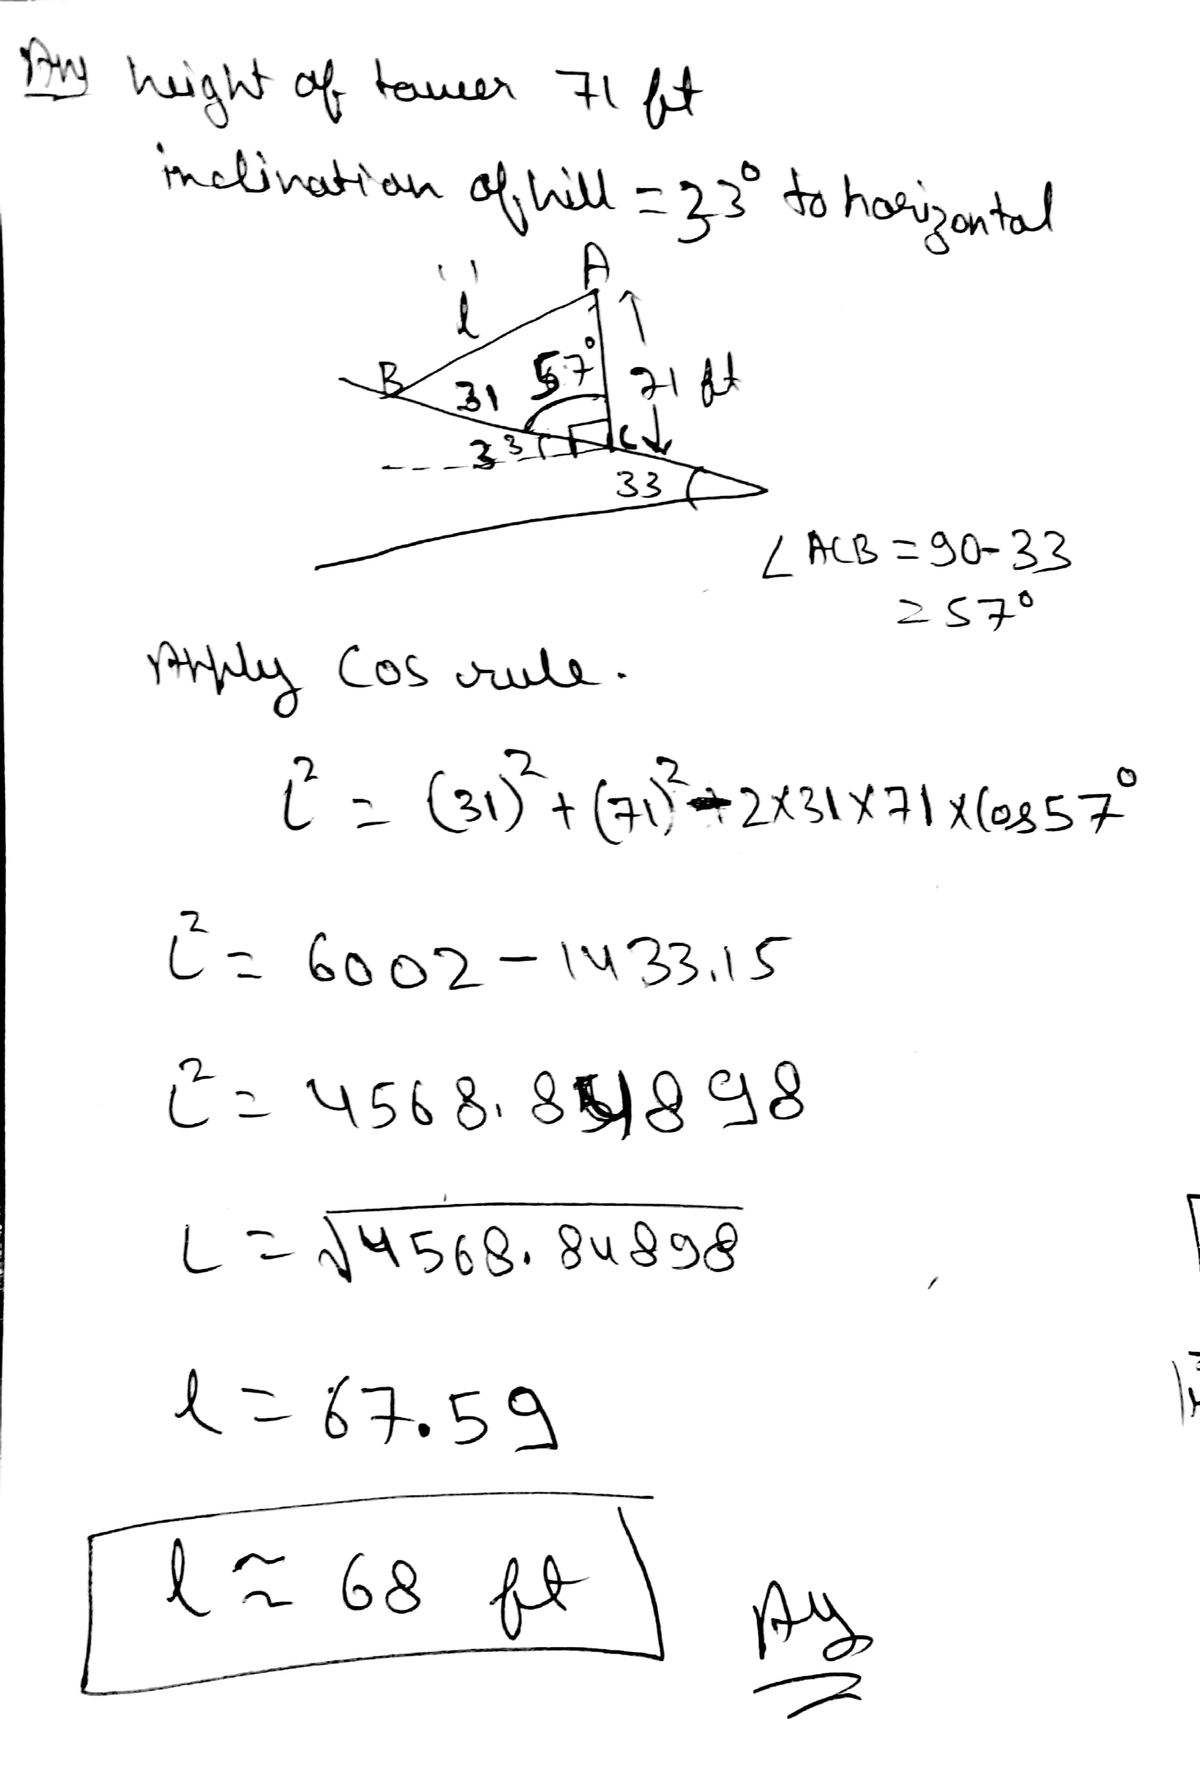 Ans height of tower 71 ft
inclination of hill = 33° to horizontal
A
l
B
31 57° 71 ft
33 C
33
∠ACB = 90-33
= 57°
Apply Cos rule.
l² = (31)² + (71)² - 2×31×71×Cos57°
l² = 6002 - 1433.15
l² = 4568.84898
L = √4568.84898
l = 67.59
l ≈ 68 ft
Ans